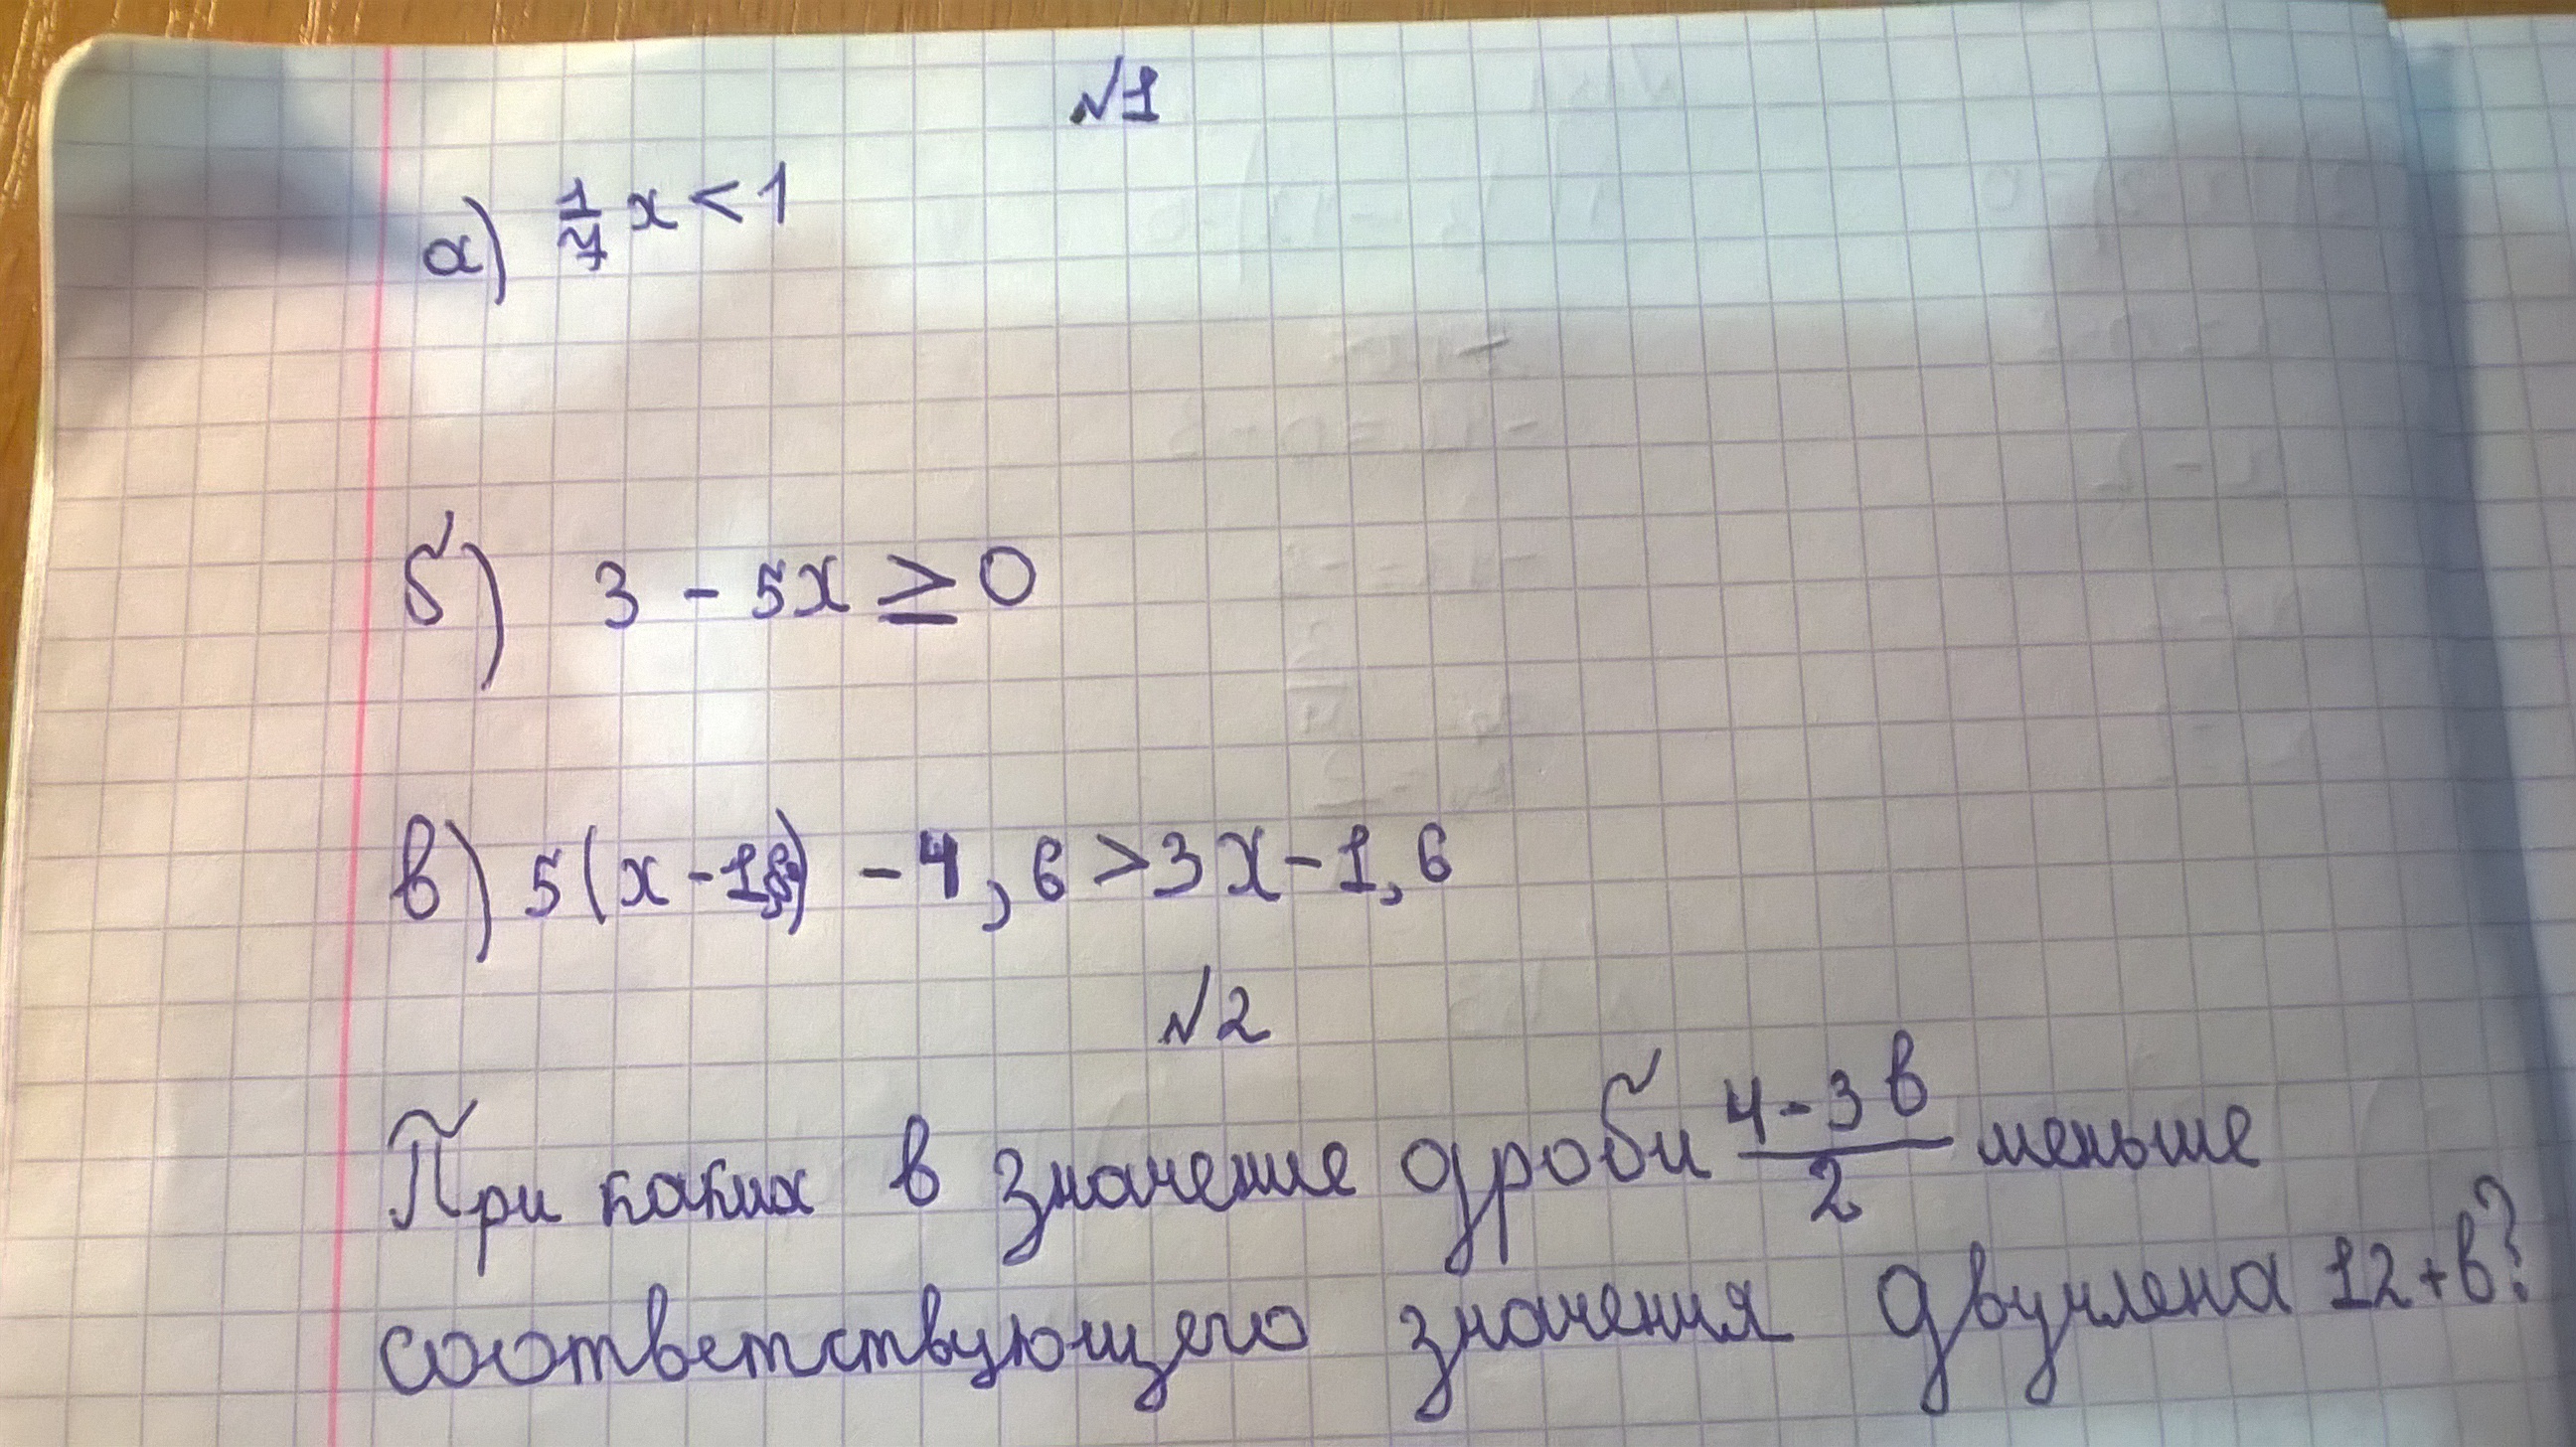 №1
а) 1/7 x < 1
б) 3 - 5x ≥ 0
в) 5(x - 1,8) - 4,6 > 3x - 1,6
№2
При каких в значение дроби (4-3в)/2 меньше
соответствующего значения двучлена 12+в?